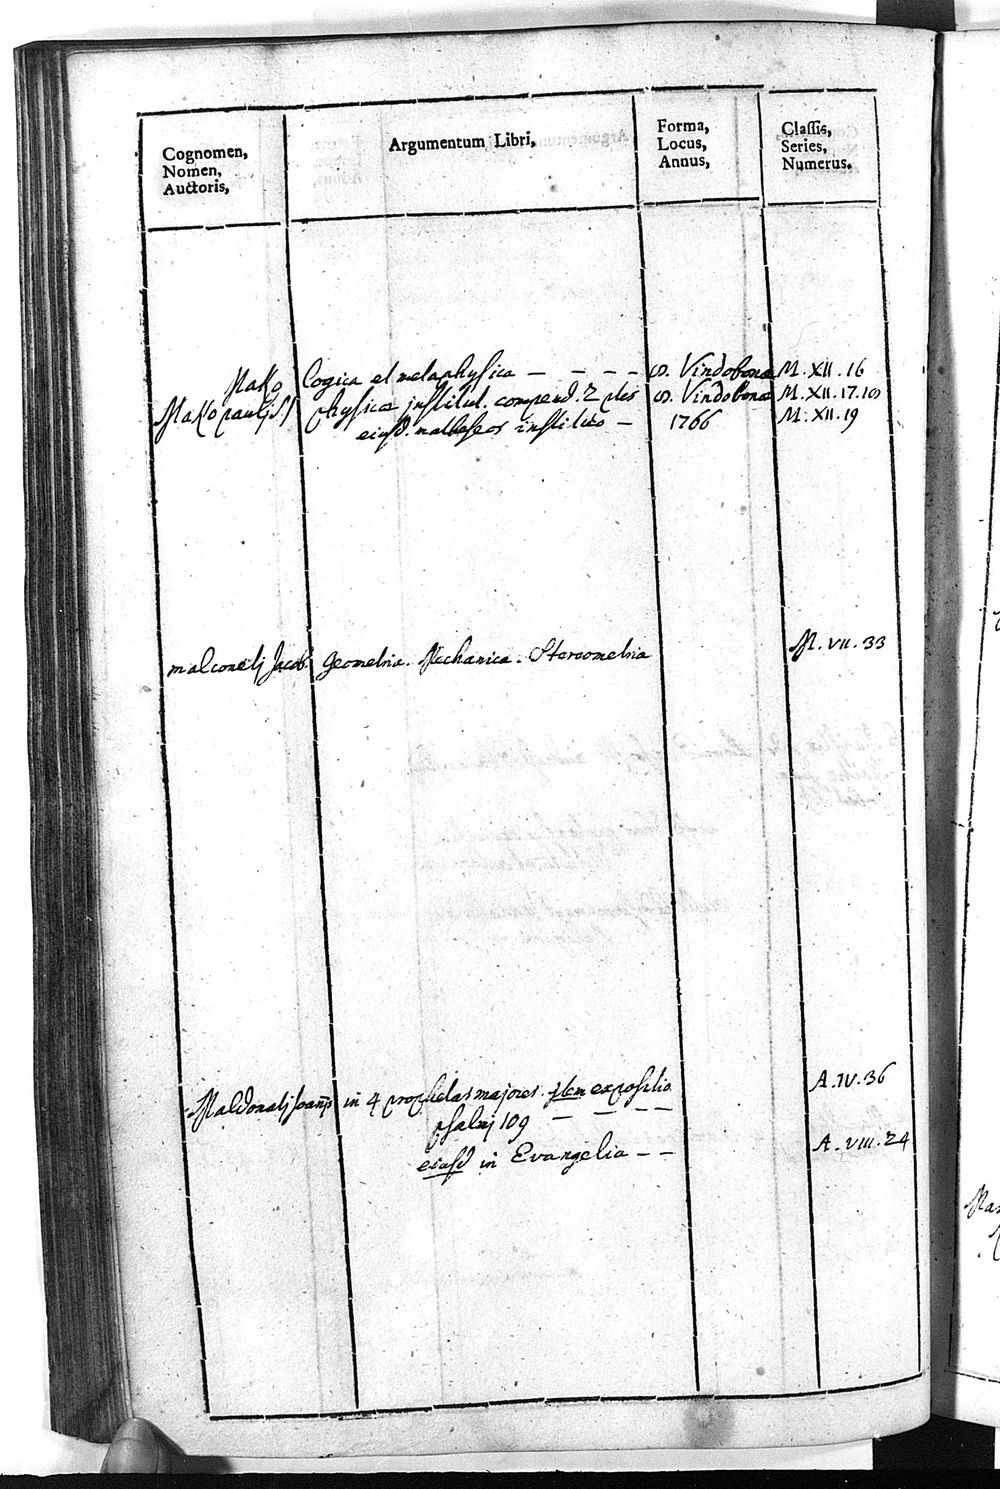 Cognomen,
Nomen,
Auctoris,
Argumentum Libri,
Forma,
Locus,
Annus,
Classis,
Series,
Numerus.
Mako logica et metaphysica — — — — 8. Vindobonæ M. XII. 16
Mako physicæ institut. compend. 2 8. Vindobonæ M. XII. 17.
eiusd. matheseos institutio — 1766 M. XII. 19
malconeti Jacob. geometria. Mechanica. Stereometria M. VII. 33
Maldonati Joannis in 4 prophetas majores. item expositio A. IV. 36
psalmi 109 — — — —
eiusd in Evangelia — — A. VIII. 24